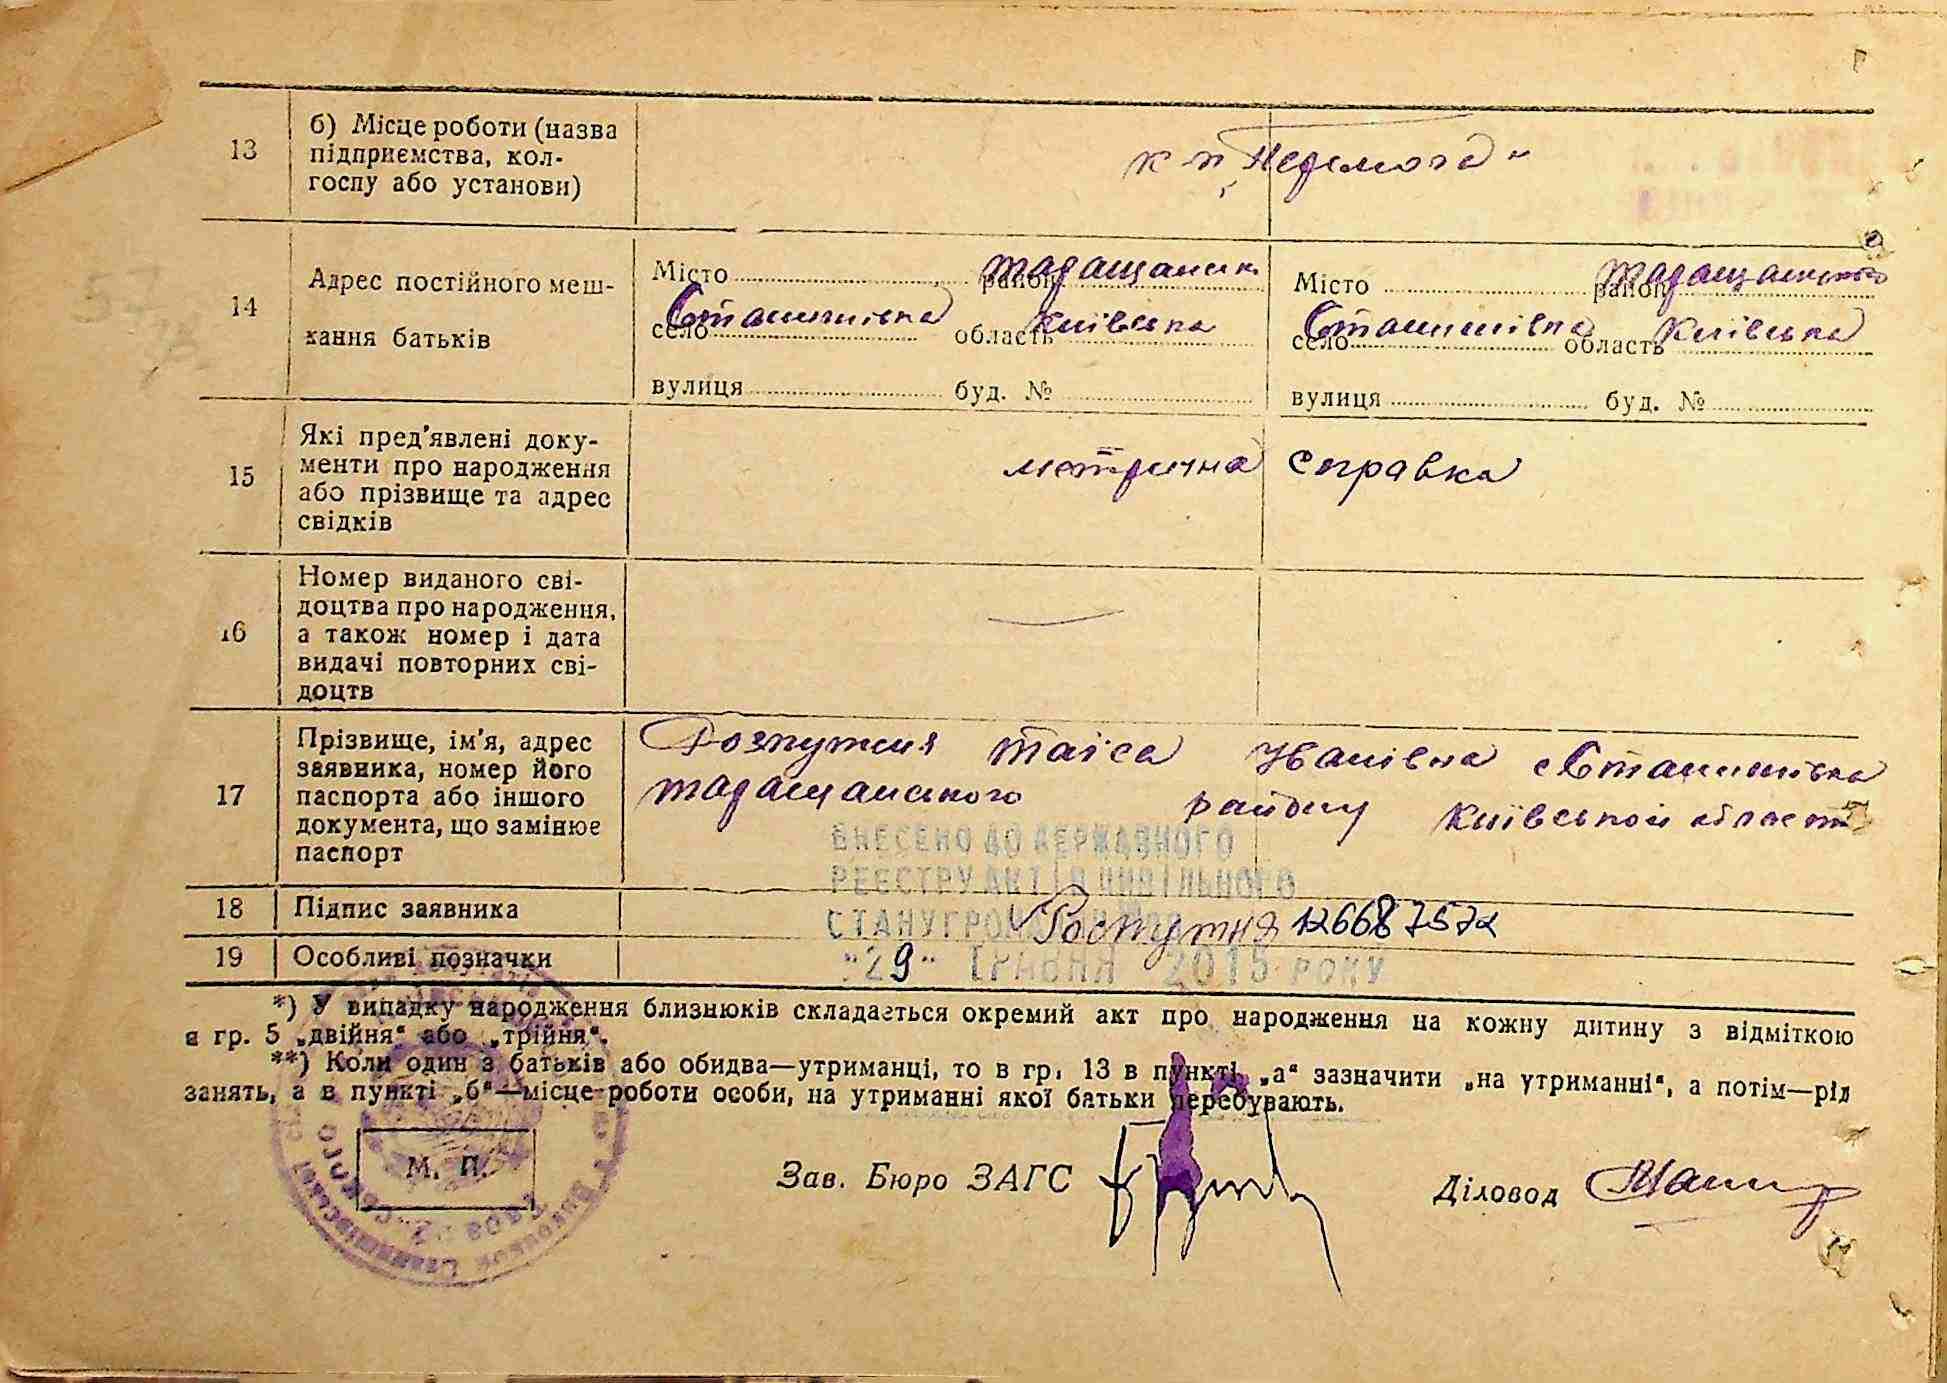 13
б) Місце роботи (назва
підприємства, кол-
госпу або установи)
к-п „Перемога"
14
Адрес постійного меш-
кання батьків
Місто район Таращанськ
село Станишівка область Київська
вулиця буд. №
Місто район Таращанського
село Станишівка область Київська
вулиця буд. №
15
Які пред'явлені доку-
менти про народження
або прізвище та адрес
свідків
метрична справка
16
Номер виданого сві-
доцтва про народження,
а також номер і дата
видачі повторних сві-
доцтв
—
17
Прізвище, ім'я, адрес
заявника, номер його
паспорта або іншого
документа, що замінює
паспорт
Розпутня Таїса Іванівна с Станишівка
Таращанського району Київської області
ВНЕСЕНО ДО ДЕРЖАВНОГО
РЕЄСТРУ АКТІВ ЦИВІЛЬНОГО
СТАНУ ГРОМАДЯН
18
Підпис заявника
Роспутня 126687572
19
Особливі позначки
"29" ТРАВНЯ 2015 РОКУ
*) У випадку народження близнюків складається окремий акт про народження на кожну дитину з відміткою
в гр. 5 „двійня" або „трійня".
**) Коли один з батьків або обидва—утриманці, то в гр. 13 в пункті „а" зазначити „на утриманні", а потім—рід
занять, а в пункті „б"—місце роботи особи, на утриманні якої батьки перебувають.
М. П.
Зав. Бюро ЗАГС
Діловод